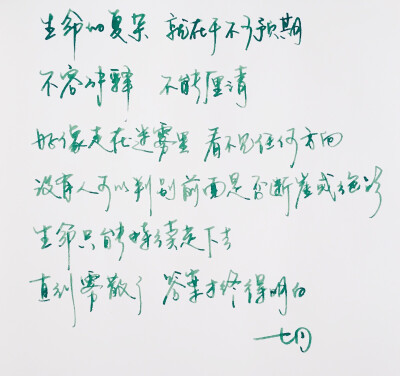 生命的复杂 就在于不可预期
不容冲释 不能厘清
好像走在迷雾里 看不见任何方向
没有人可以判别前面是否断崖或绝路
生命只能持续走下去
直到雾散了 答案才终得明白
七月